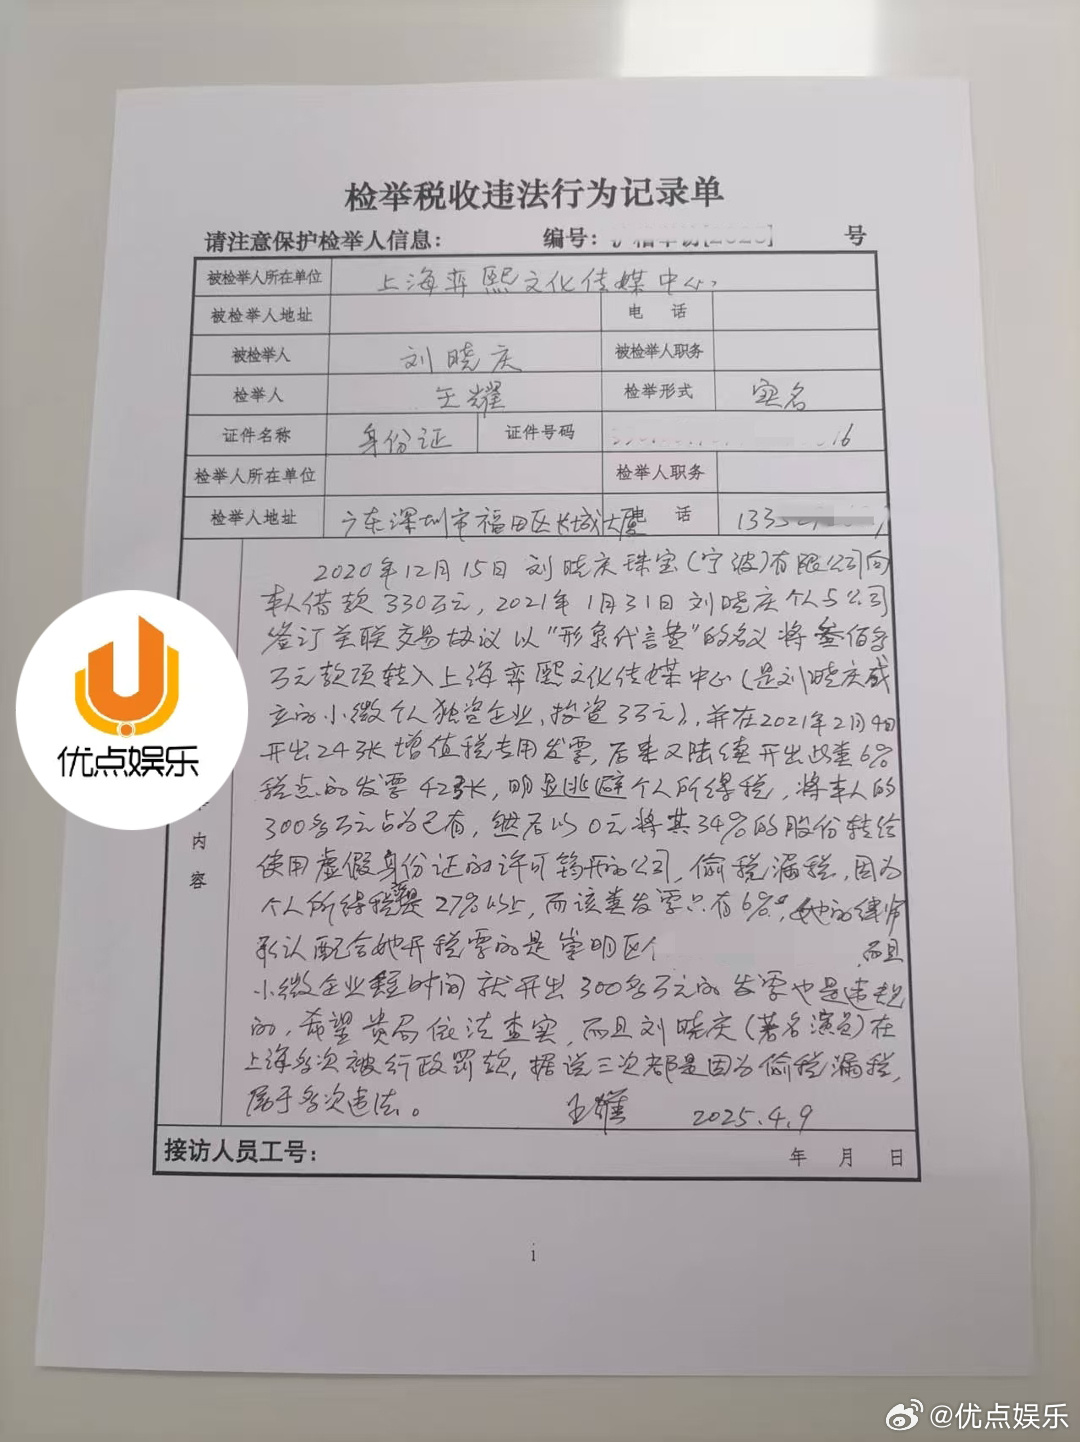 检举税收违法行为记录单
请注意保护检举人信息： 编号： 号
被检举人所在单位 上海弈熙文化传媒中心
被检举人地址 电 话
被检举人 刘晓庆 被检举人职务
检举人 王耀 检举形式 实名
证件名称 身份证 证件号码 16
检举人所在单位 检举人职务
检举人地址 广东深圳市福田区长城大厦 电 话 133
2020年12月15日刘晓庆珠宝(宁波)有限公司向
本人借款330万元，2021年1月31日刘晓庆个人与公司
签订关联交易协议以“形象代言费”的名义将叁佰多
万元款项转入上海弈熙文化传媒中心(是刘晓庆成
立的小微个人独资企业，投资3万元)，并在2021年2月4日
开出24张增值税专用发票，后来又陆续开出此类6%
税点的发票42张，明显逃避个人所得税，将本人的
300多万元占为己有，然后以0元将其34%的股份转给
使用虚假身份证的许可筠开的公司，偷税漏税，因为
个人所得税是27%以上，而该类发票只有6%，她的律师
承认配合她开税票的是崇明区个 而且
小微企业短时间就开出300多万元的发票也是违规
的，希望贵局依法查实，而且刘晓庆(著名演员)在
上海多次被行政罚款，据说三次都是因为偷税漏税，
属于多次违法。 王耀 2025.4.9
内
容
接访人员工号： 年 月 日
i
优点娱乐
@优点娱乐